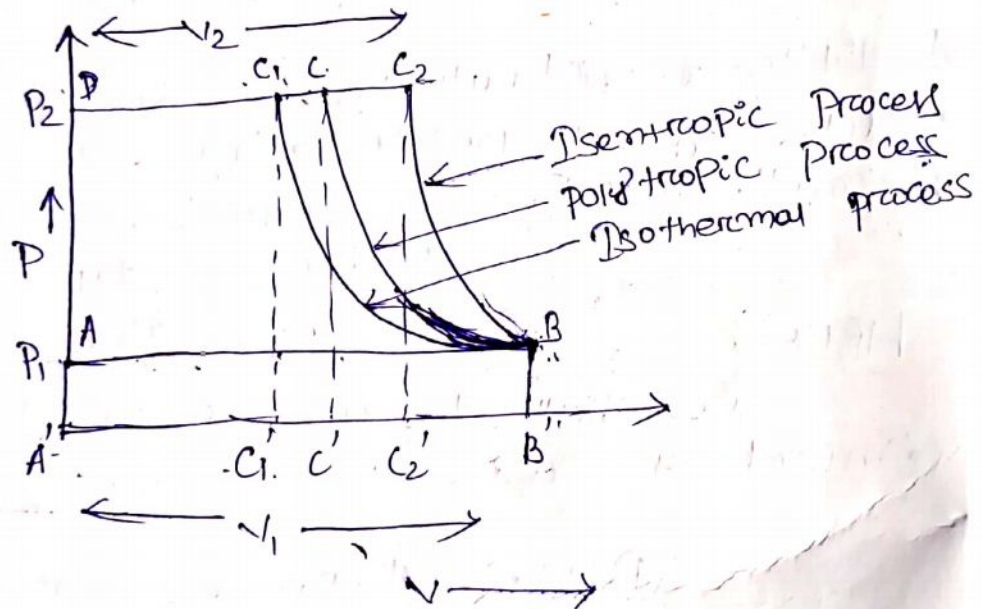 V2
C1 C C2
P2 D
Isentropic Process
Polytropic Process
Isothermal process
P
A B
P1
A' C1' C' C2' B'
V1
V